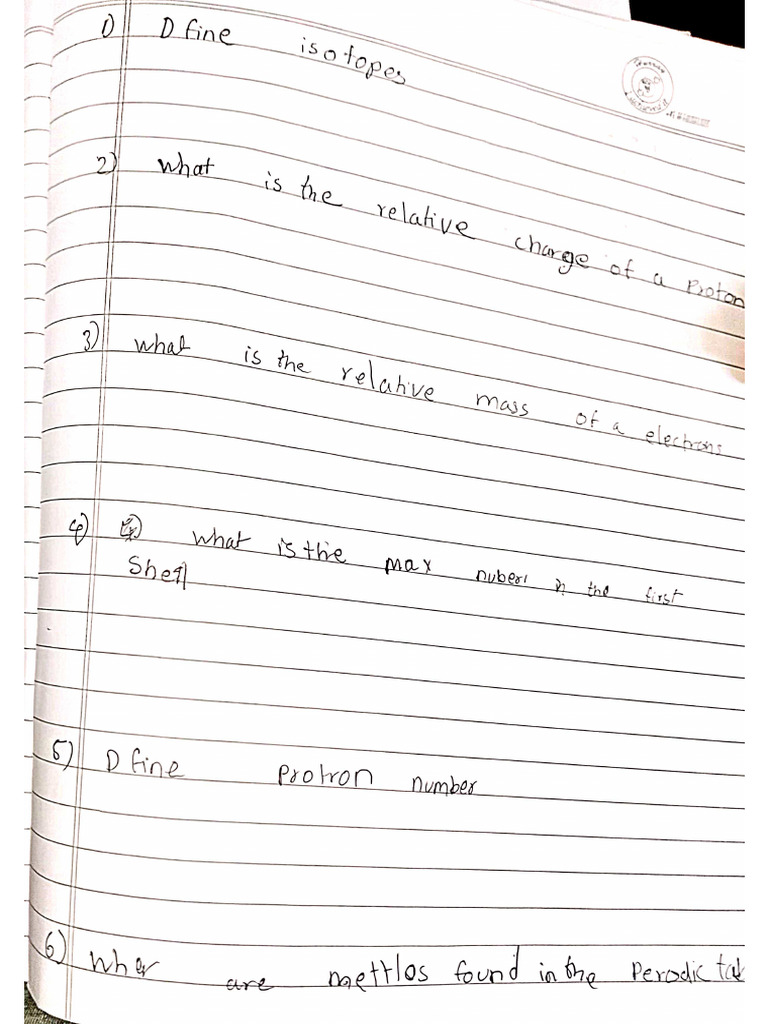 1) Dfine isotopes
2) What is the relative charge of a proton
3) what is the relative mass of a electrons
4) what is the max nuber in the first
Shell
5) Dfine protron number
6) Wher are mettlos found in the Perodic tab